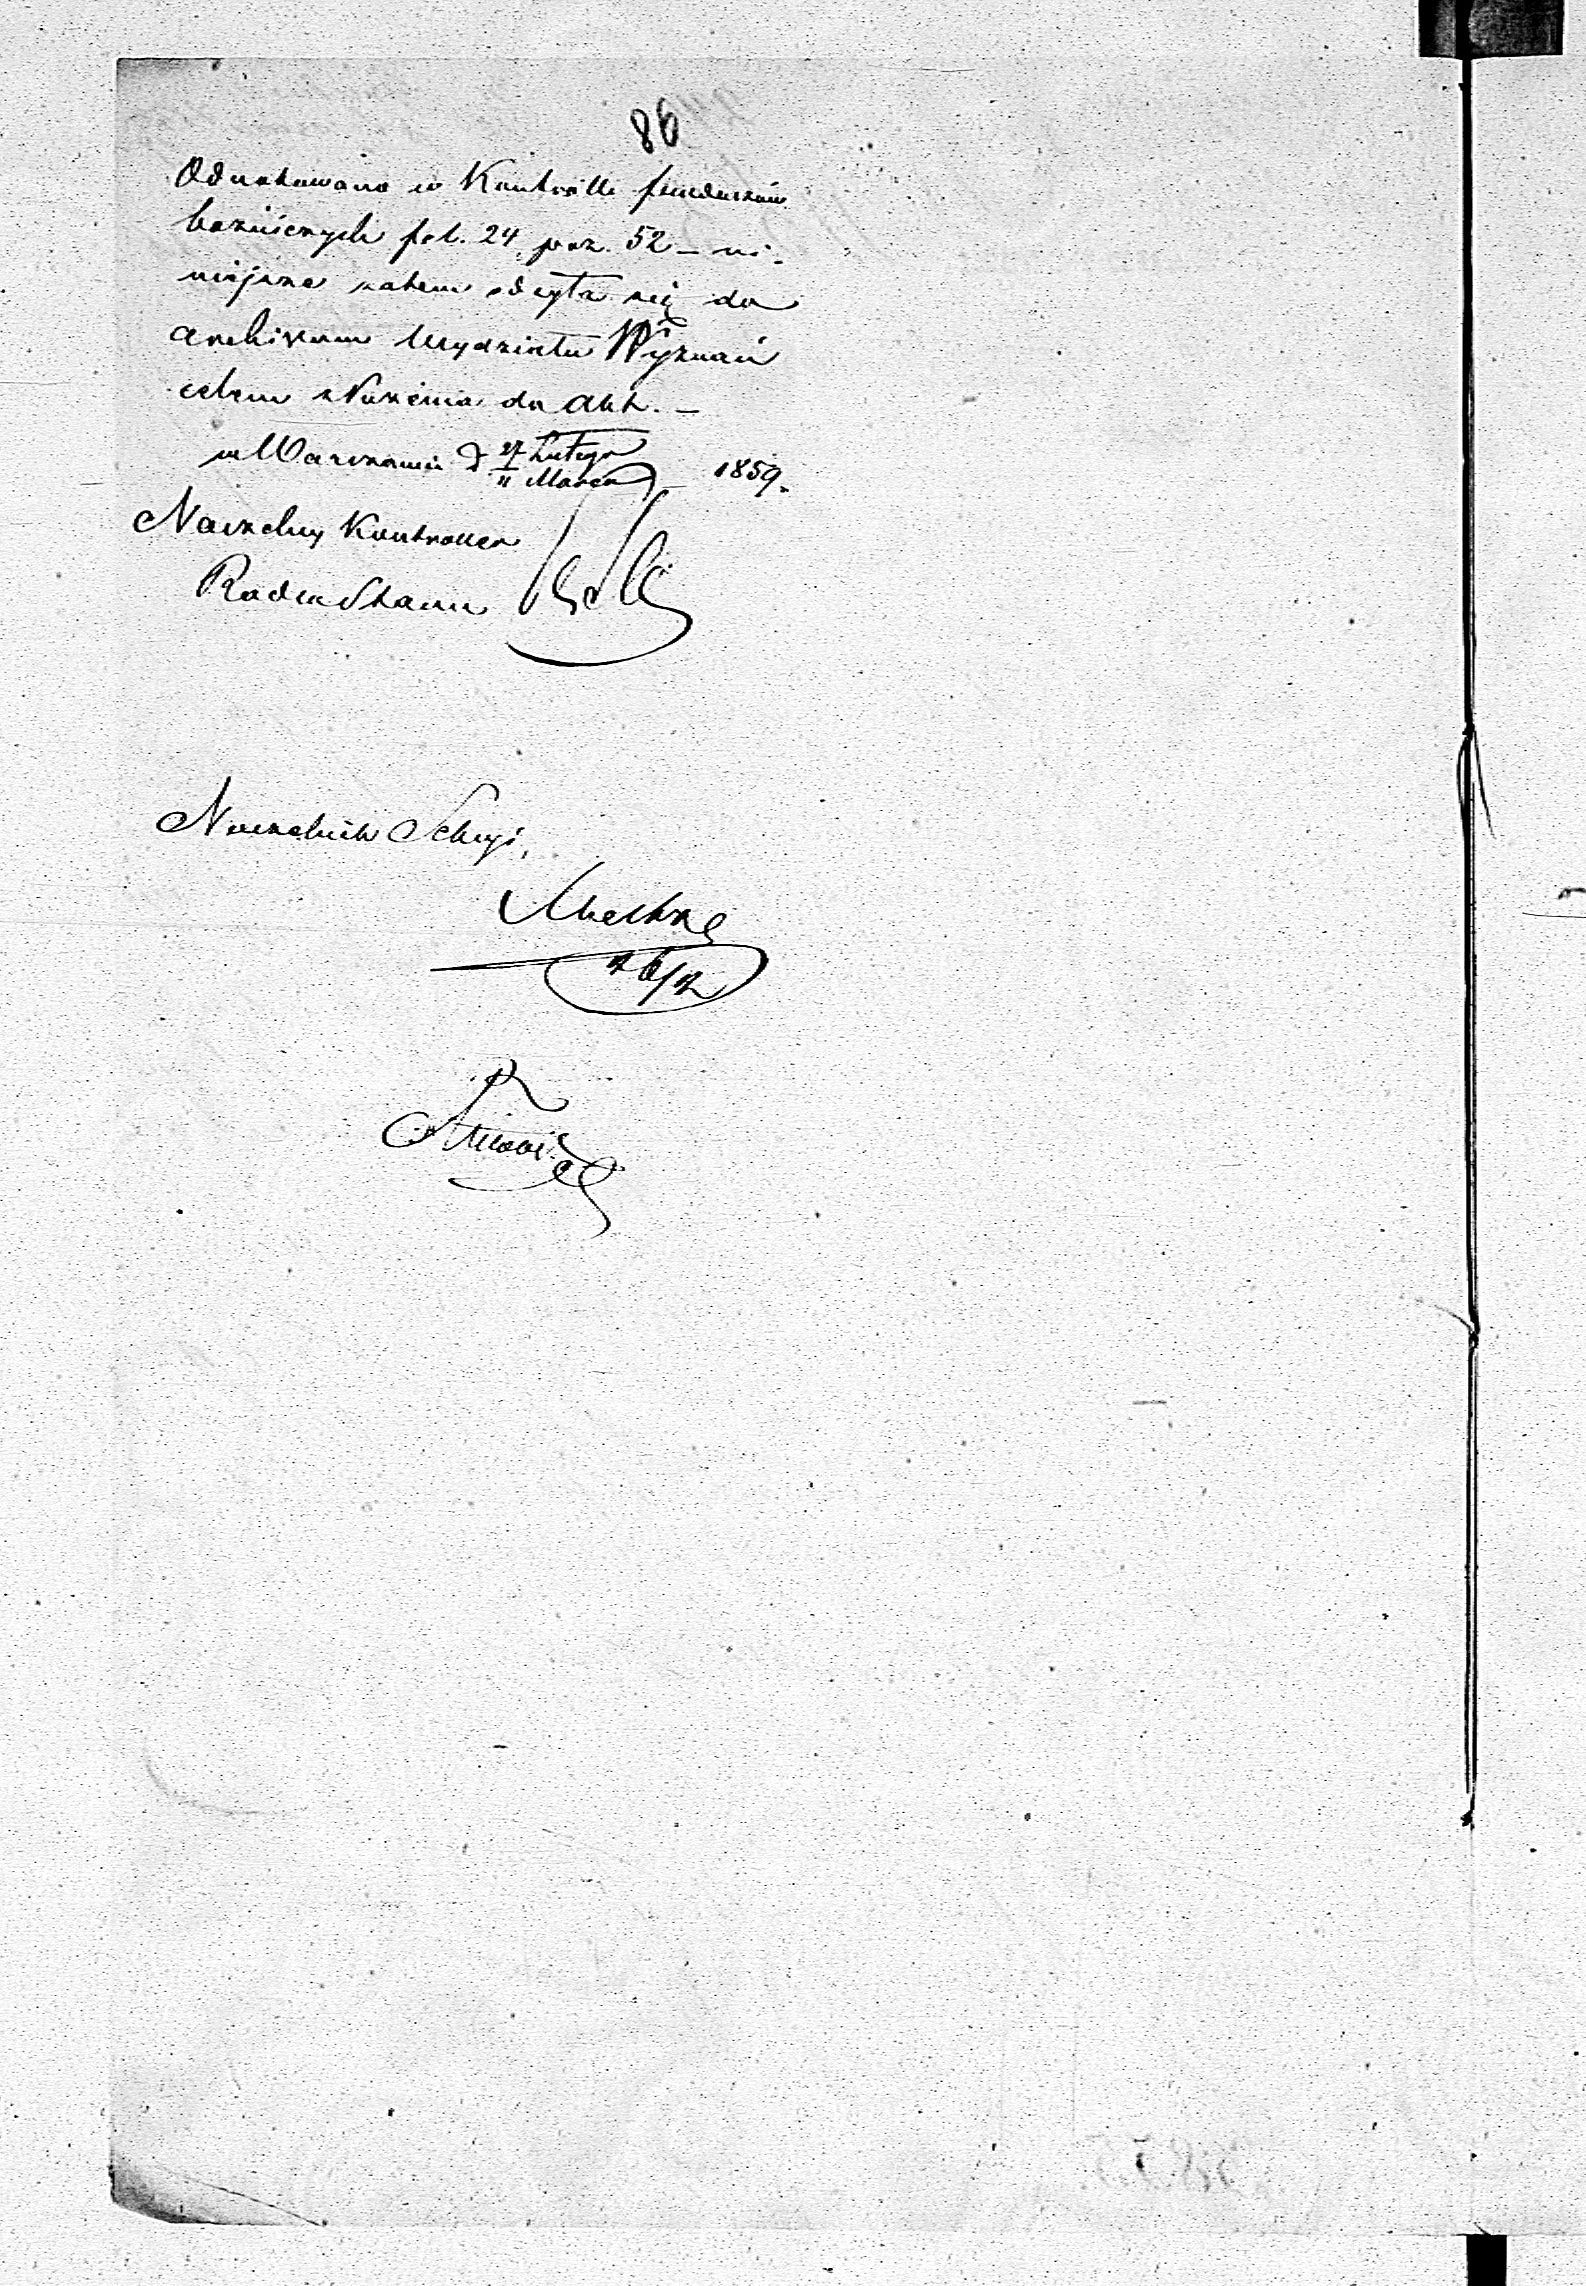 86
Odnotowano w Kontrolli funduszów
bożniczych fol. 24 poz. 52 – ni-
niejsze zatem odsyła się do
Archiwum Wydziału Wyznań
celem złożenia do Akt. –
w Warszawie d 27 Lutego
11 Marca 1859.
Naczelny Kontroller
Radca Stanu
Naczelnik Sekcyi,